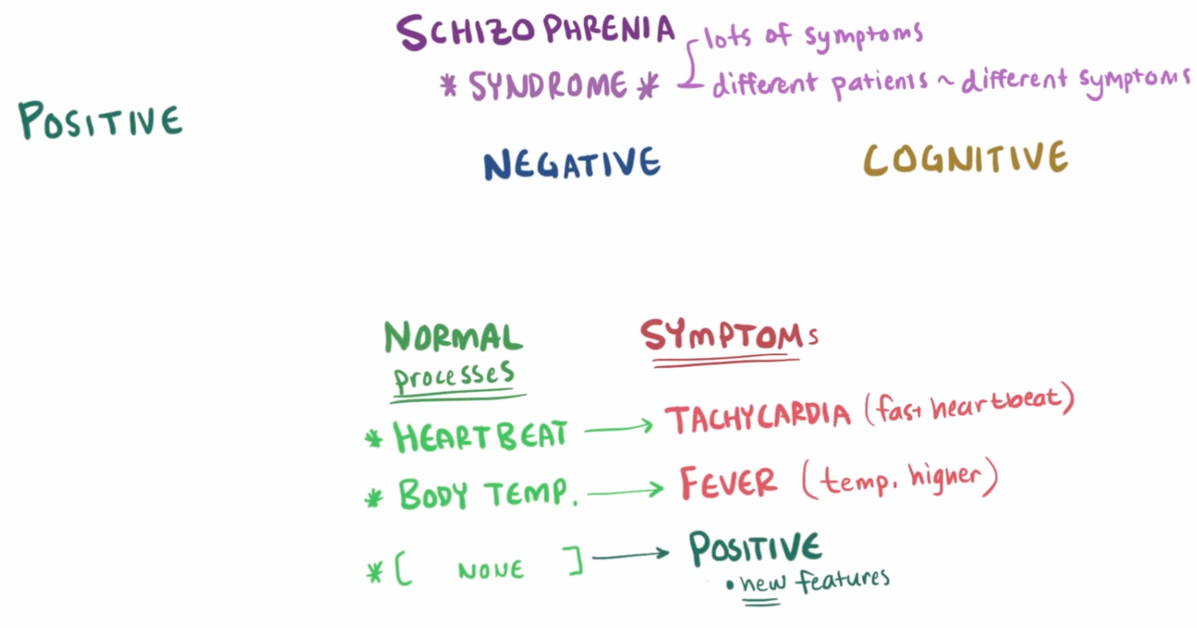 SCHIZOPHRENIA
lots of symptoms
* SYNDROME *
different patients ~ different symptoms
POSITIVE
NEGATIVE
COGNITIVE
NORMAL
processes
SYMPTOMS
* HEARTBEAT → TACHYCARDIA (fast heartbeat)
* BODY TEMP. → FEVER (temp. higher)
* [ NONE ] → POSITIVE
• new features